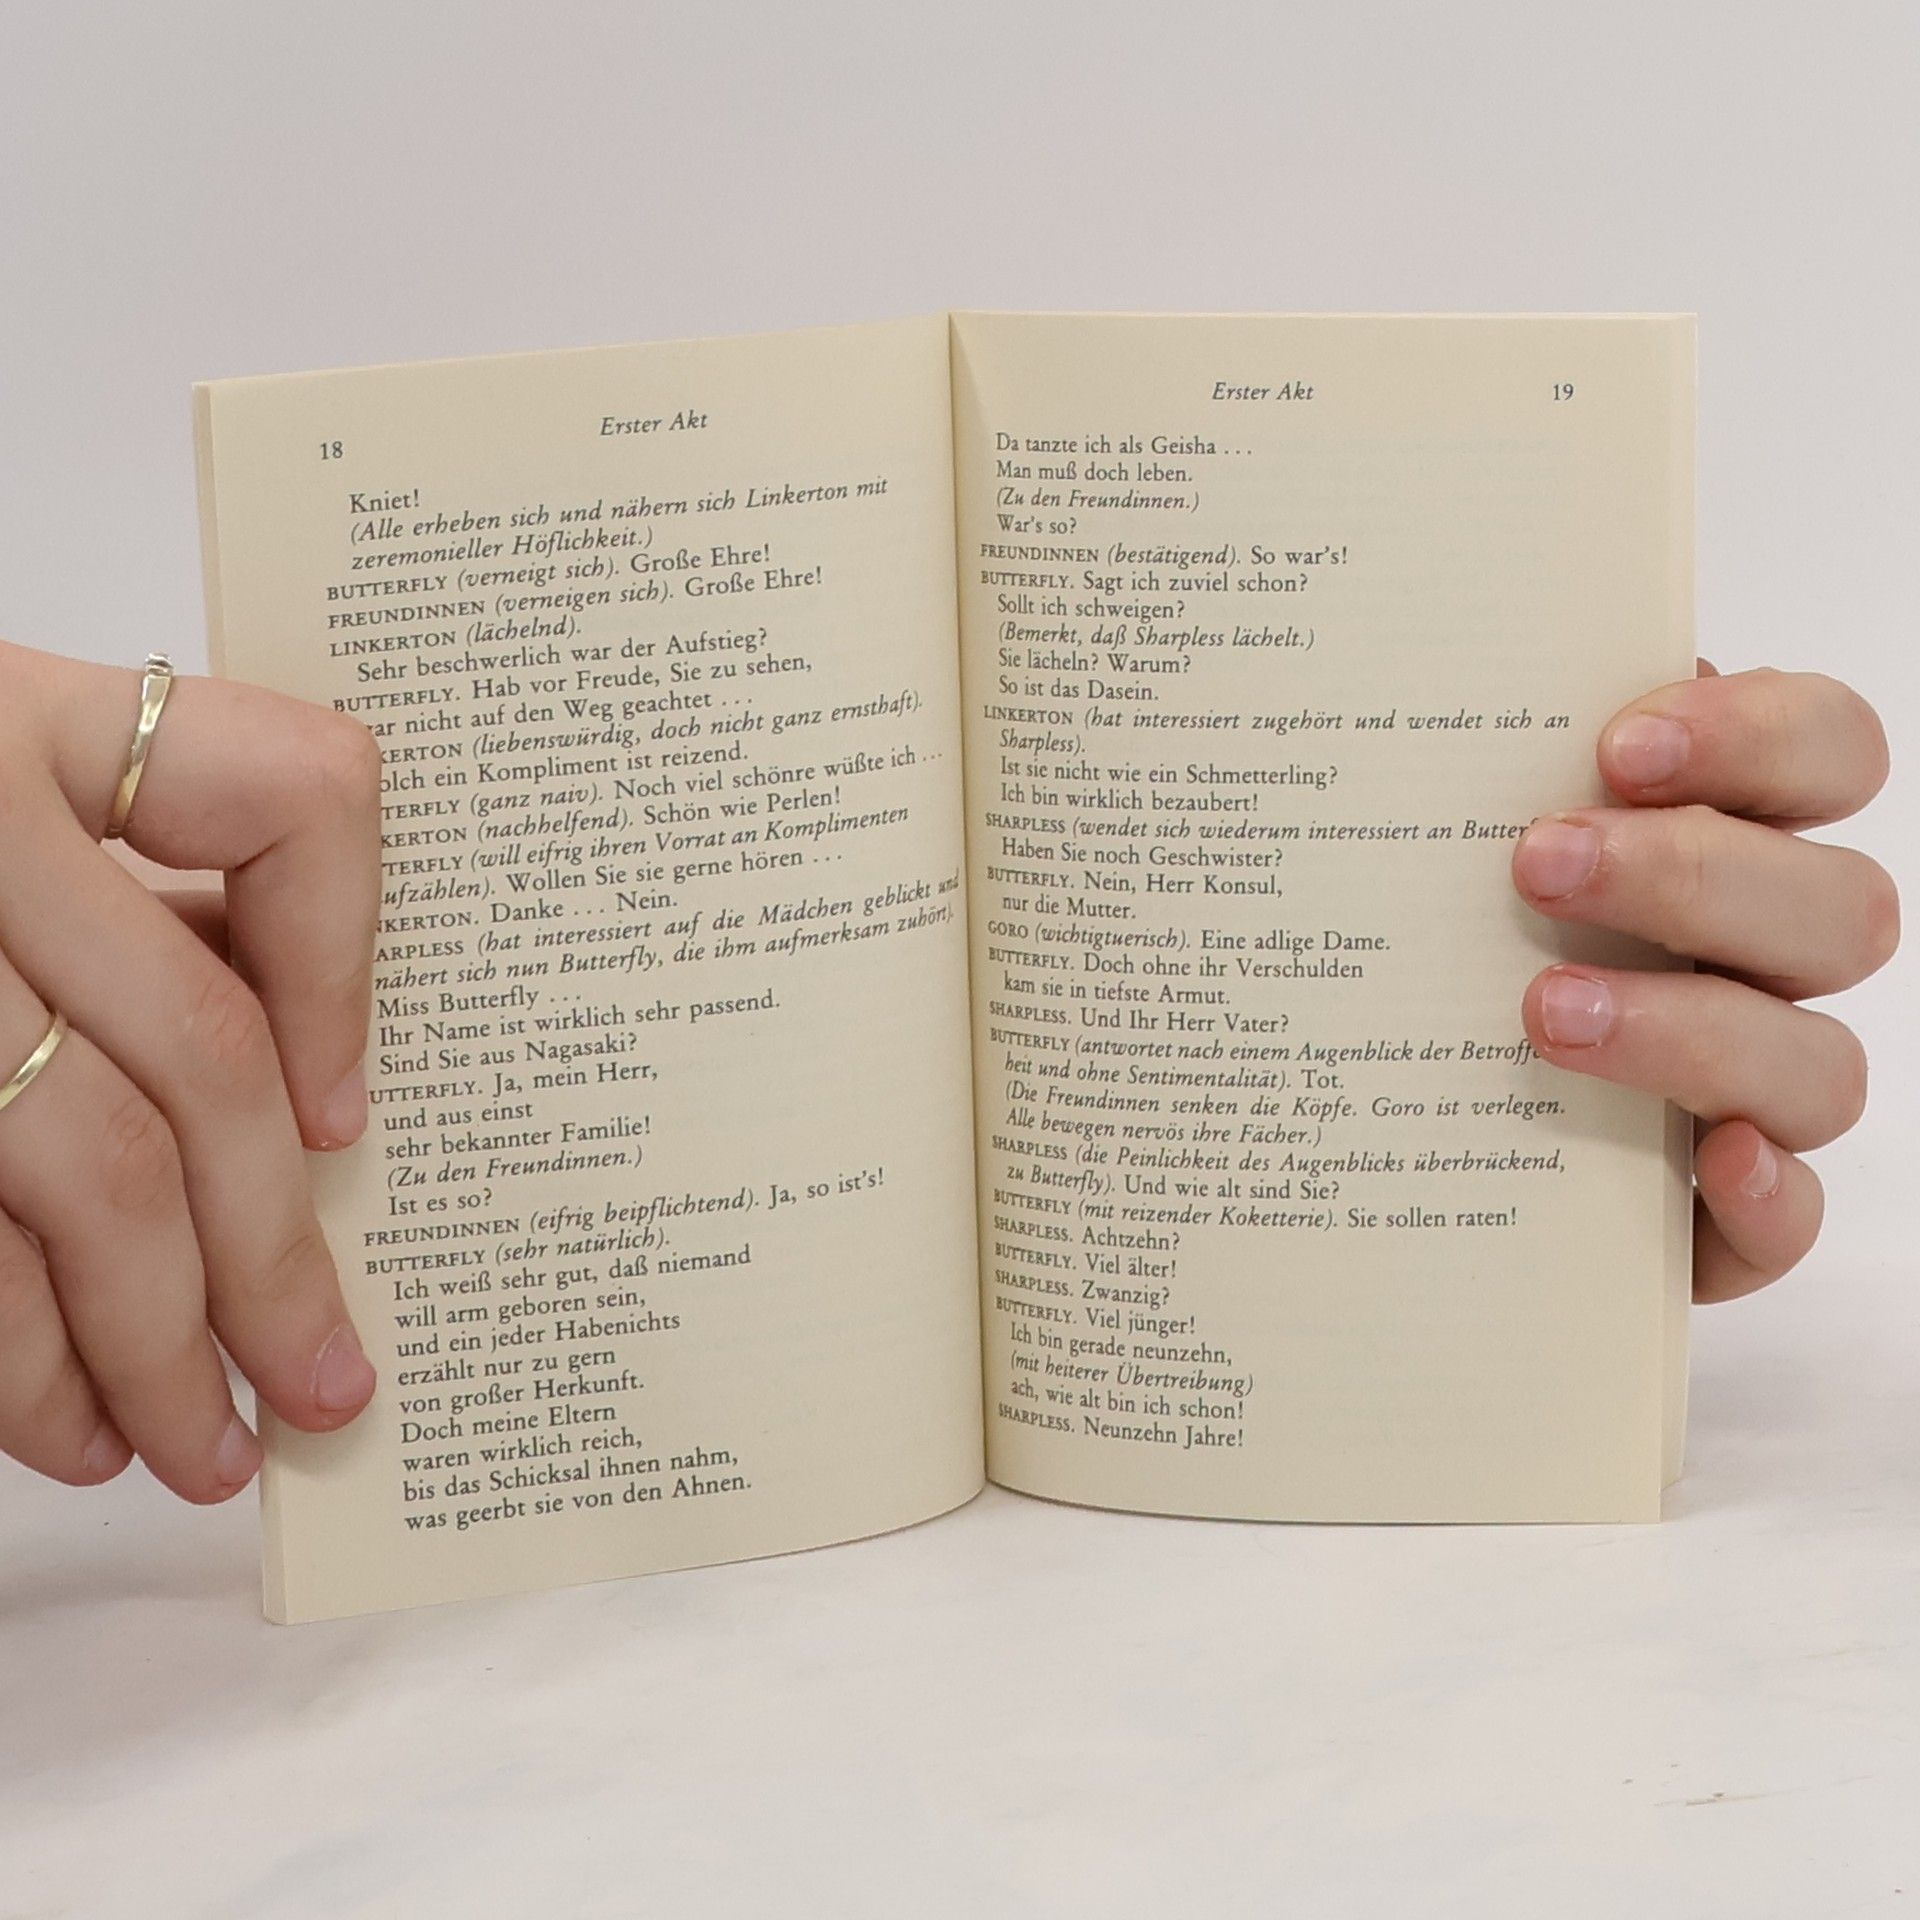 18
Erster Akt
Kniet!
(Alle erheben sich und nähern sich Linkerton mit
zeremonieller Höflichkeit.)
BUTTERFLY (verneigt sich). Große Ehre!
FREUNDINNEN (verneigen sich). Große Ehre!
LINKERTON (lächelnd).
Sehr beschwerlich war der Aufstieg?
BUTTERFLY. Hab vor Freude, Sie zu sehen,
nicht auf den Weg geachtet . . .
(liebenswürdig, doch nicht ganz ernsthaft).
ein Kompliment ist reizend.
(ganz naiv). Noch viel schönre wüßte ich . . .
(nachhelfend). Schön wie Perlen!
(will eifrig ihren Vorrat an Komplimenten
Wollen Sie sie gerne hören . . .
Danke . . . Nein.
(hat interessiert auf die Mädchen geblickt und
nähert sich nun Butterfly, die ihm aufmerksam zuhört).
Miss Butterfly . . .
Ihr Name ist wirklich sehr passend.
Sind Sie aus Nagasaki?
Ja, mein Herr,
und aus einst
sehr bekannter Familie!
(Zu den Freundinnen.)
Ist es so?
FREUNDINNEN (eifrig beipflichtend). Ja, so ist's!
BUTTERFLY (sehr natürlich).
Ich weiß sehr gut, daß niemand
will arm geboren sein,
und ein jeder Habenichts
erzählt nur zu gern
von großer Herkunft.
Doch meine Eltern
waren wirklich reich,
bis das Schicksal ihnen nahm,
was geerbt sie von den Ahnen.
Erster Akt
19
Da tanzte ich als Geisha . . .
Man muß doch leben.
(Zu den Freundinnen.)
War's so?
FREUNDINNEN (bestätigend). So war's!
BUTTERFLY. Sagt ich zuviel schon?
Sollt ich schweigen?
(Bemerkt, daß Sharpless lächelt.)
Sie lächeln? Warum?
So ist das Dasein.
LINKERTON (hat interessiert zugehört und wendet sich an
Sharpless).
Ist sie nicht wie ein Schmetterling?
Ich bin wirklich bezaubert!
SHARPLESS (wendet sich wiederum interessiert an
Haben Sie noch Geschwister?
BUTTERFLY. Nein, Herr Konsul,
nur die Mutter.
GORO (wichtigtuerisch). Eine adlige Dame.
BUTTERFLY. Doch ohne ihr Verschulden
kam sie in tiefste Armut.
SHARPLESS. Und Ihr Herr Vater?
BUTTERFLY (antwortet nach einem Augenblick der
heit und ohne Sentimentalität). Tot.
(Die Freundinnen senken die Köpfe. Goro ist verlegen.
Alle bewegen nervös ihre Fächer.)
SHARPLESS (die Peinlichkeit des Augenblicks überbrückend,
zu Butterfly). Und wie alt sind Sie?
BUTTERFLY (mit reizender Koketterie). Sie sollen raten!
SHARPLESS. Achtzehn?
BUTTERFLY. Viel älter!
SHARPLESS. Zwanzig?
BUTTERFLY. Viel jünger!
Ich bin gerade neunzehn,
(mit heiterer Übertreibung)
ach, wie alt bin ich schon!
SHARPLESS. Neunzehn Jahre!